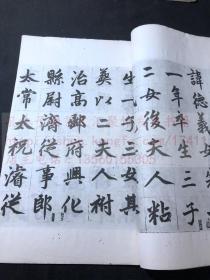 諱德義女
一年卒生三子
二女後夫人粘
生一子三女其
葬以二夫人祔
治高郵府興化
縣尉濟從事郎
太常太祝濬從